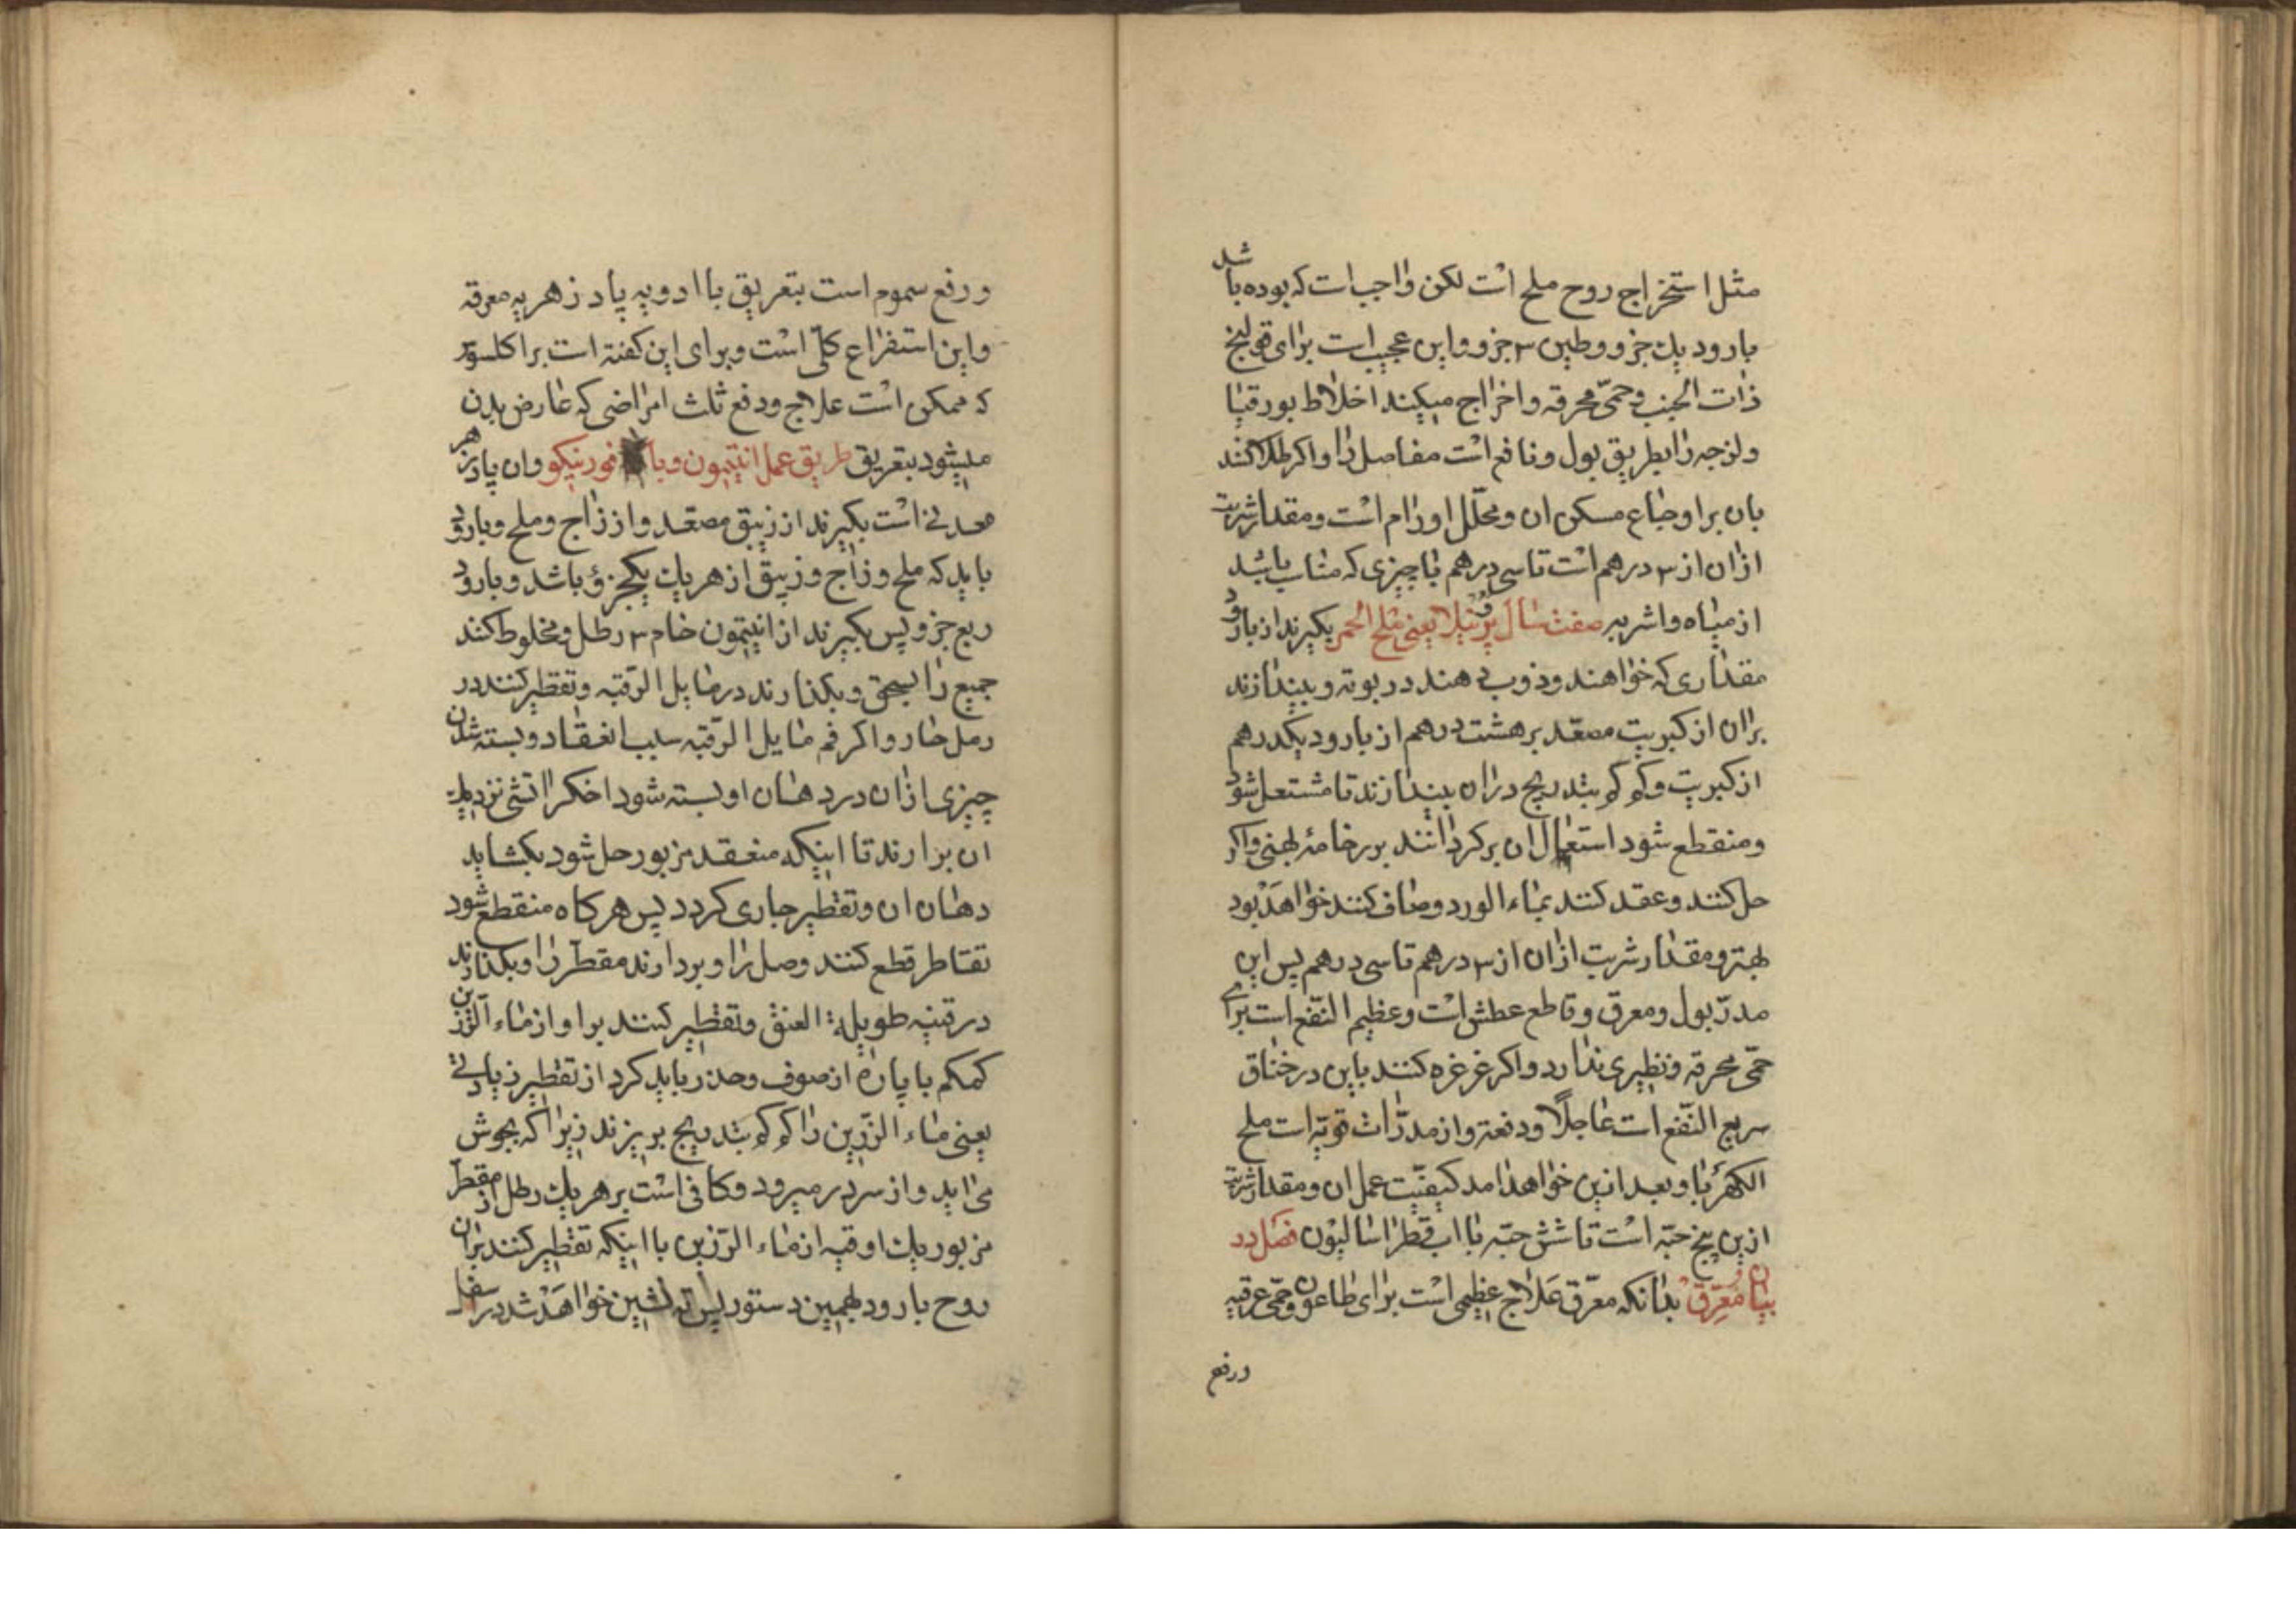 مثل استخراج روح ملح است لکن واجب است که بوده باشد
بارود یک جزو وطین ۳ جزو واین عجیب است برای قولنج
ذات الجنب وحمّی محرقه واخراج میکند اخلاط بورقیا
ولزجه را بطریق بول ونافع است مفاصل را واکر طلا کنند
بان براوجاع مسکن ان ومحلّل اورام است ومقدار شربت
ازان از ۳ درهم است تا سی درهم با چیزی که مناسب باشد
از میاه واشربه صفت سال پرنیلا یعنی ملح الحمر بکیرند از بارود
مقداری که خواهند وذوب دهند در بوته وبیندازند
بران از کبریت مصعّد بر هشت درهم از بارود یکدرهم
از کبریت وکم کم بتدریج دران بیندازند تا مشتعل شود
ومنقطع شود استعمال ان برکردانند بر رخامهٔ پهنی واکر
حل کنند وعقد کنند بماء الورد وصاف کنند خواهد بود
بهتر ومقدار شربت ازان از ۳ درهم تا سی درهم پس این
مدرّ بول ومعرق وقاطع عطش است وعظیم النّفع است برای
حمّی محرقه ونظیری ندارد واکر غرغره کنند باین در خناق
سریع النّفع است عاجلاً ودفعتر واز مدرّات قویّه است ملح
الکهربا وبعد ازین خواهد امد کیفیّت عمل ان ومقدار شربت
ازین پنج حبّه است تا شش حبّه با اب قطر اسالیون فصل در
بیان معرّق بدانکه معرّق علاج عظیمی است برای طاعون وحمّی عرقیه
ورفع
ورفع سموم است بتعریق با ادویه پادزهریه معرقه
واین استفراغ کلّی است وبرای این کفته است براکلسوس
که ممکن است علاج ودفع ثلث امراضی که عارض بدن
میشود بتعریق طریق عمل انتیمون وبا فورنیکو وان پادزهر
معدنی است بکیرند از زیبق مصعّد واز زاج وملح وبارود
باید که ملح وزاج وزیبق از هر یک یکجزؤ باشد وبارود
ربع جزو پس بکیرند از انتیمون خام ۳ رطل ومخلوط کنند
جمیع را بسحق وبکذارند در مایل الرّقبه وتقطیر کنند در
رمل حار واکر فم مایل الرّقبه سبب انعقاد وبسته شدن
چیزی ازان در دهان او بسته شود اخکر اتشی نزدیک
ان بدارند تا اینکه منعقد مزبور حل شود بکشاید
دهان ان وتقطیر جاری کردد پس هر کاه منقطع شود
تقاطر قطع کنند وصل را وبردارند مقطّر را وبکذارند
در قنینه طویلة العنق وتقطیر کنند براو از ماء الرّزین
کمکم با پارهٔ از صوف وحذر باید کرد از تقطیر زیادتی
یعنی ماء الرّزین را کم کم بتدریج بریزند زیرا که بجوش
می اید واز سر در میرود وکافی است بر هر یک رطل از مقطّر
مزبور یک اوقیه از ماء الرّزین با اینکه تقطیر کنند بران
روح بارود بهمین دستور پس ته نشین خواهد شد در اسفل